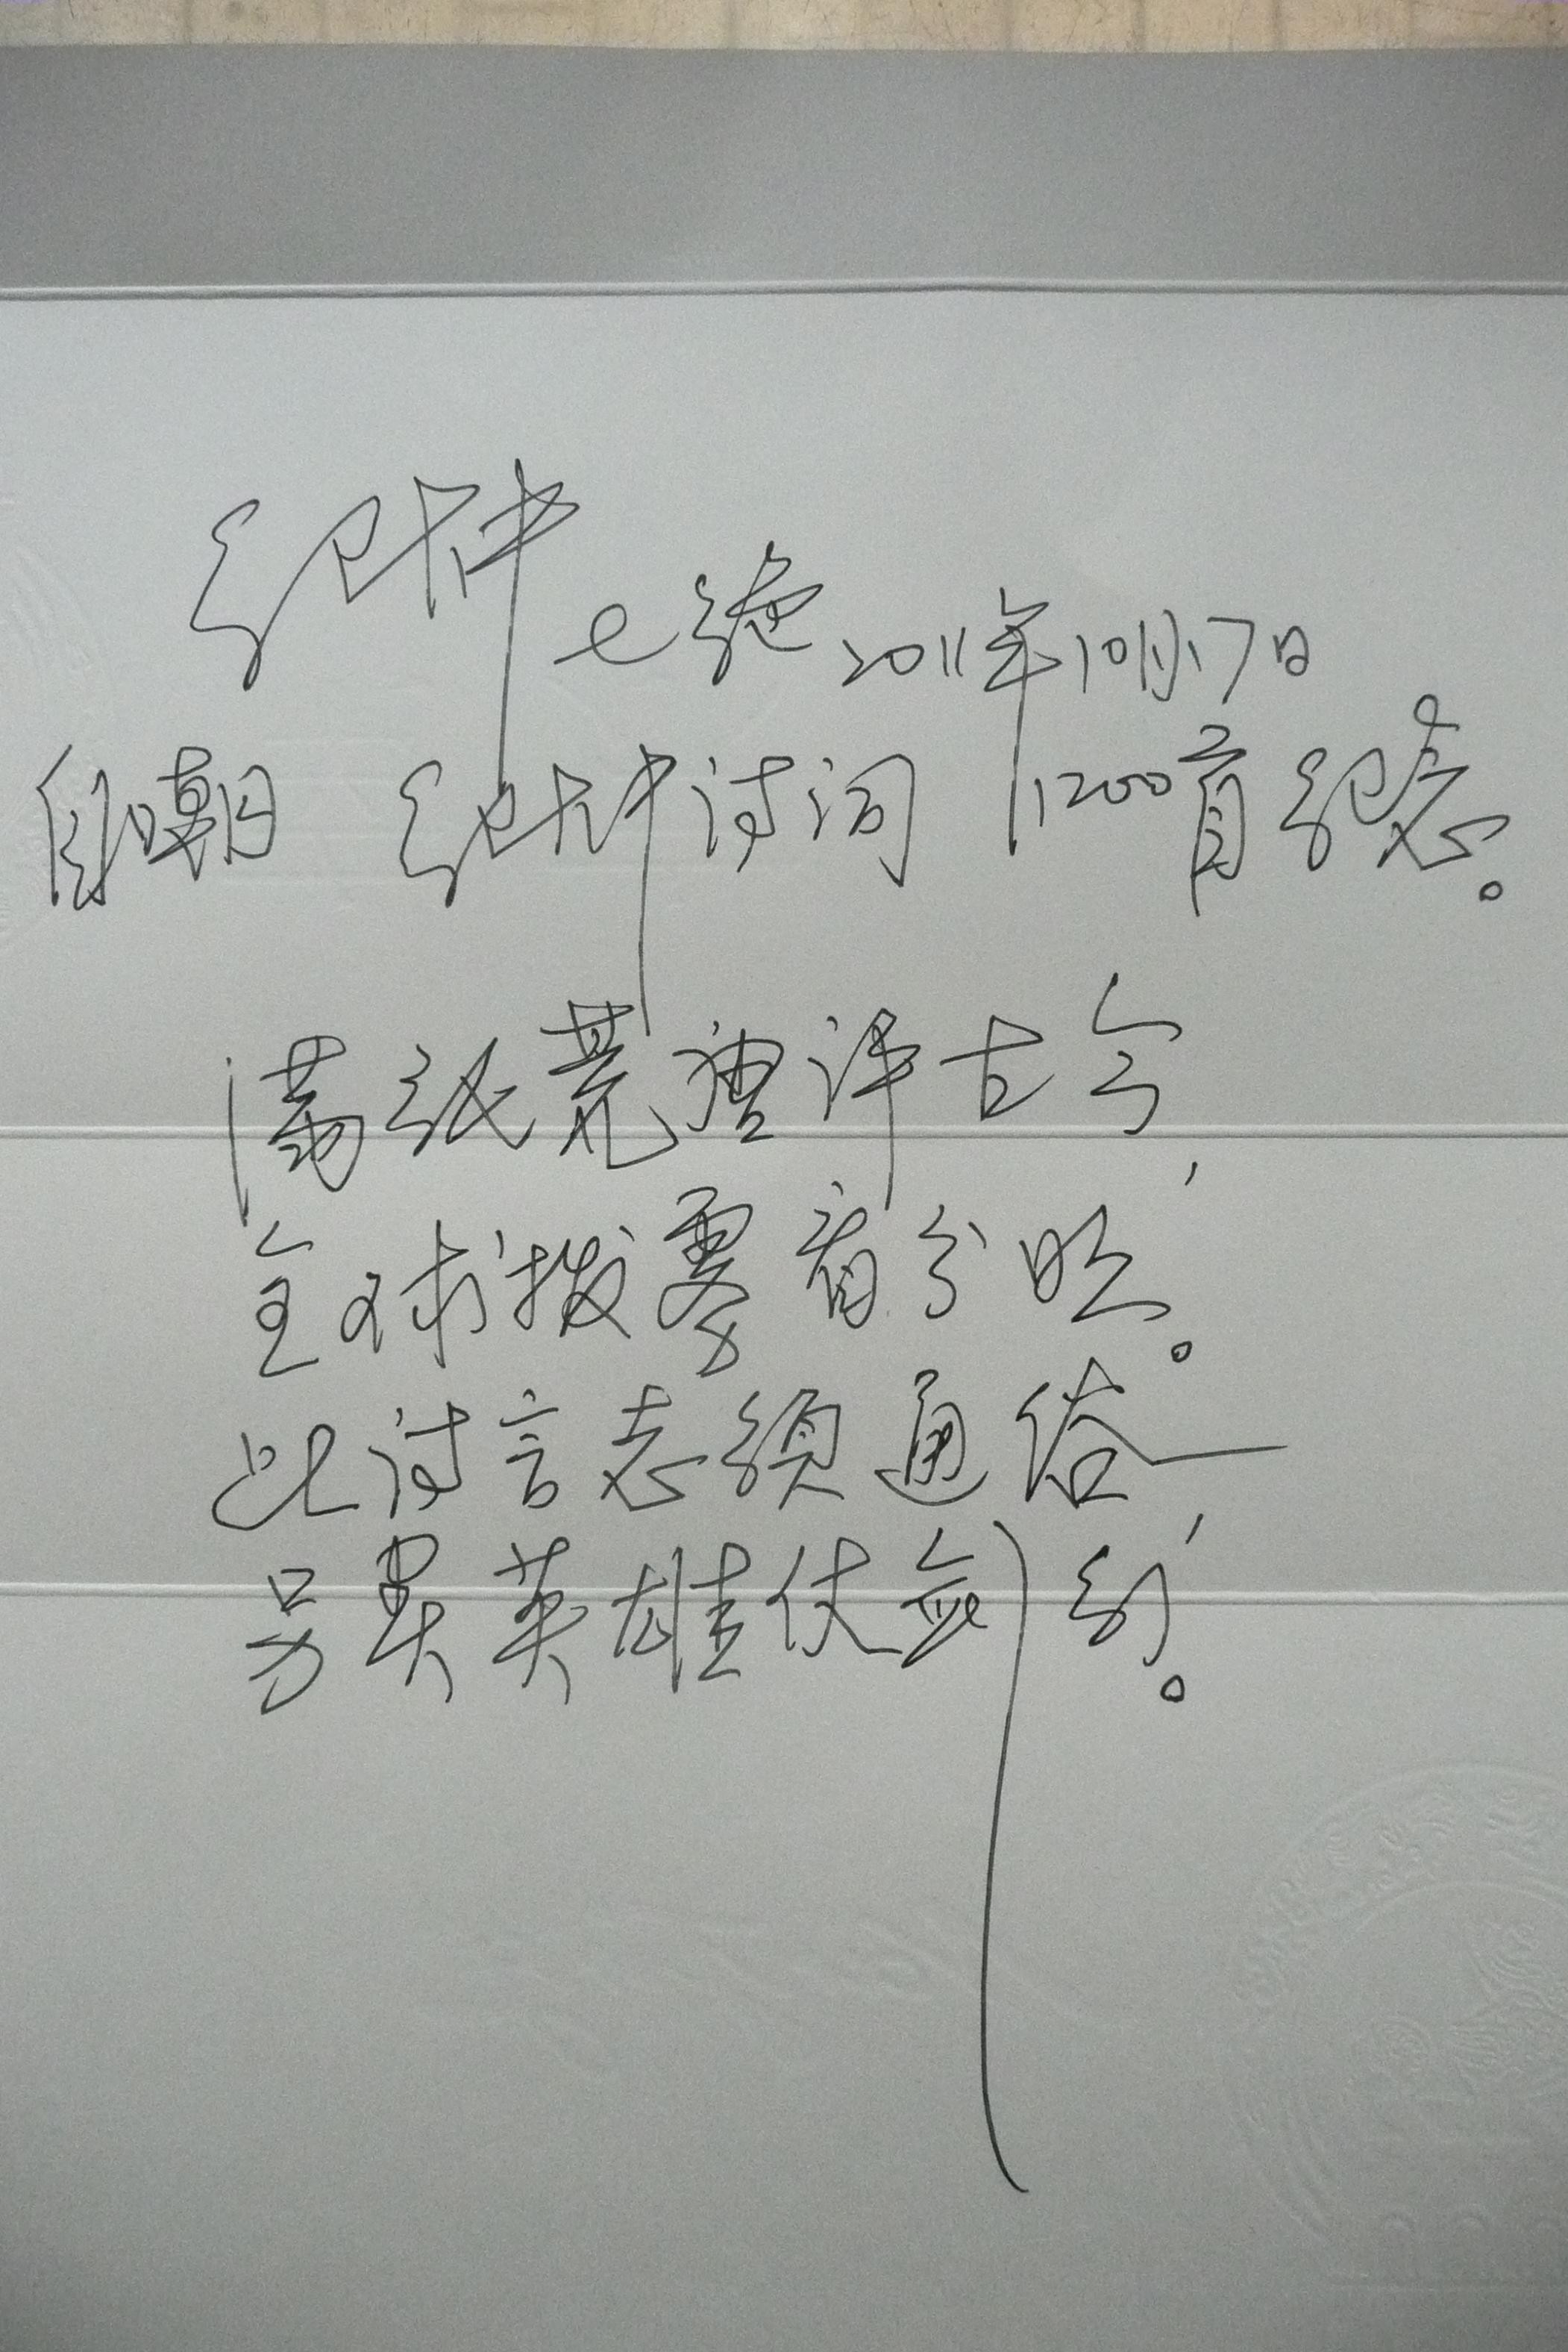 七绝 2011年10月17日
自嘲 诗词1200首纪念。
满纸荒唐评古今,
全球拨雾看分明。
此诗言志须通俗,
另类英雄仗剑行。